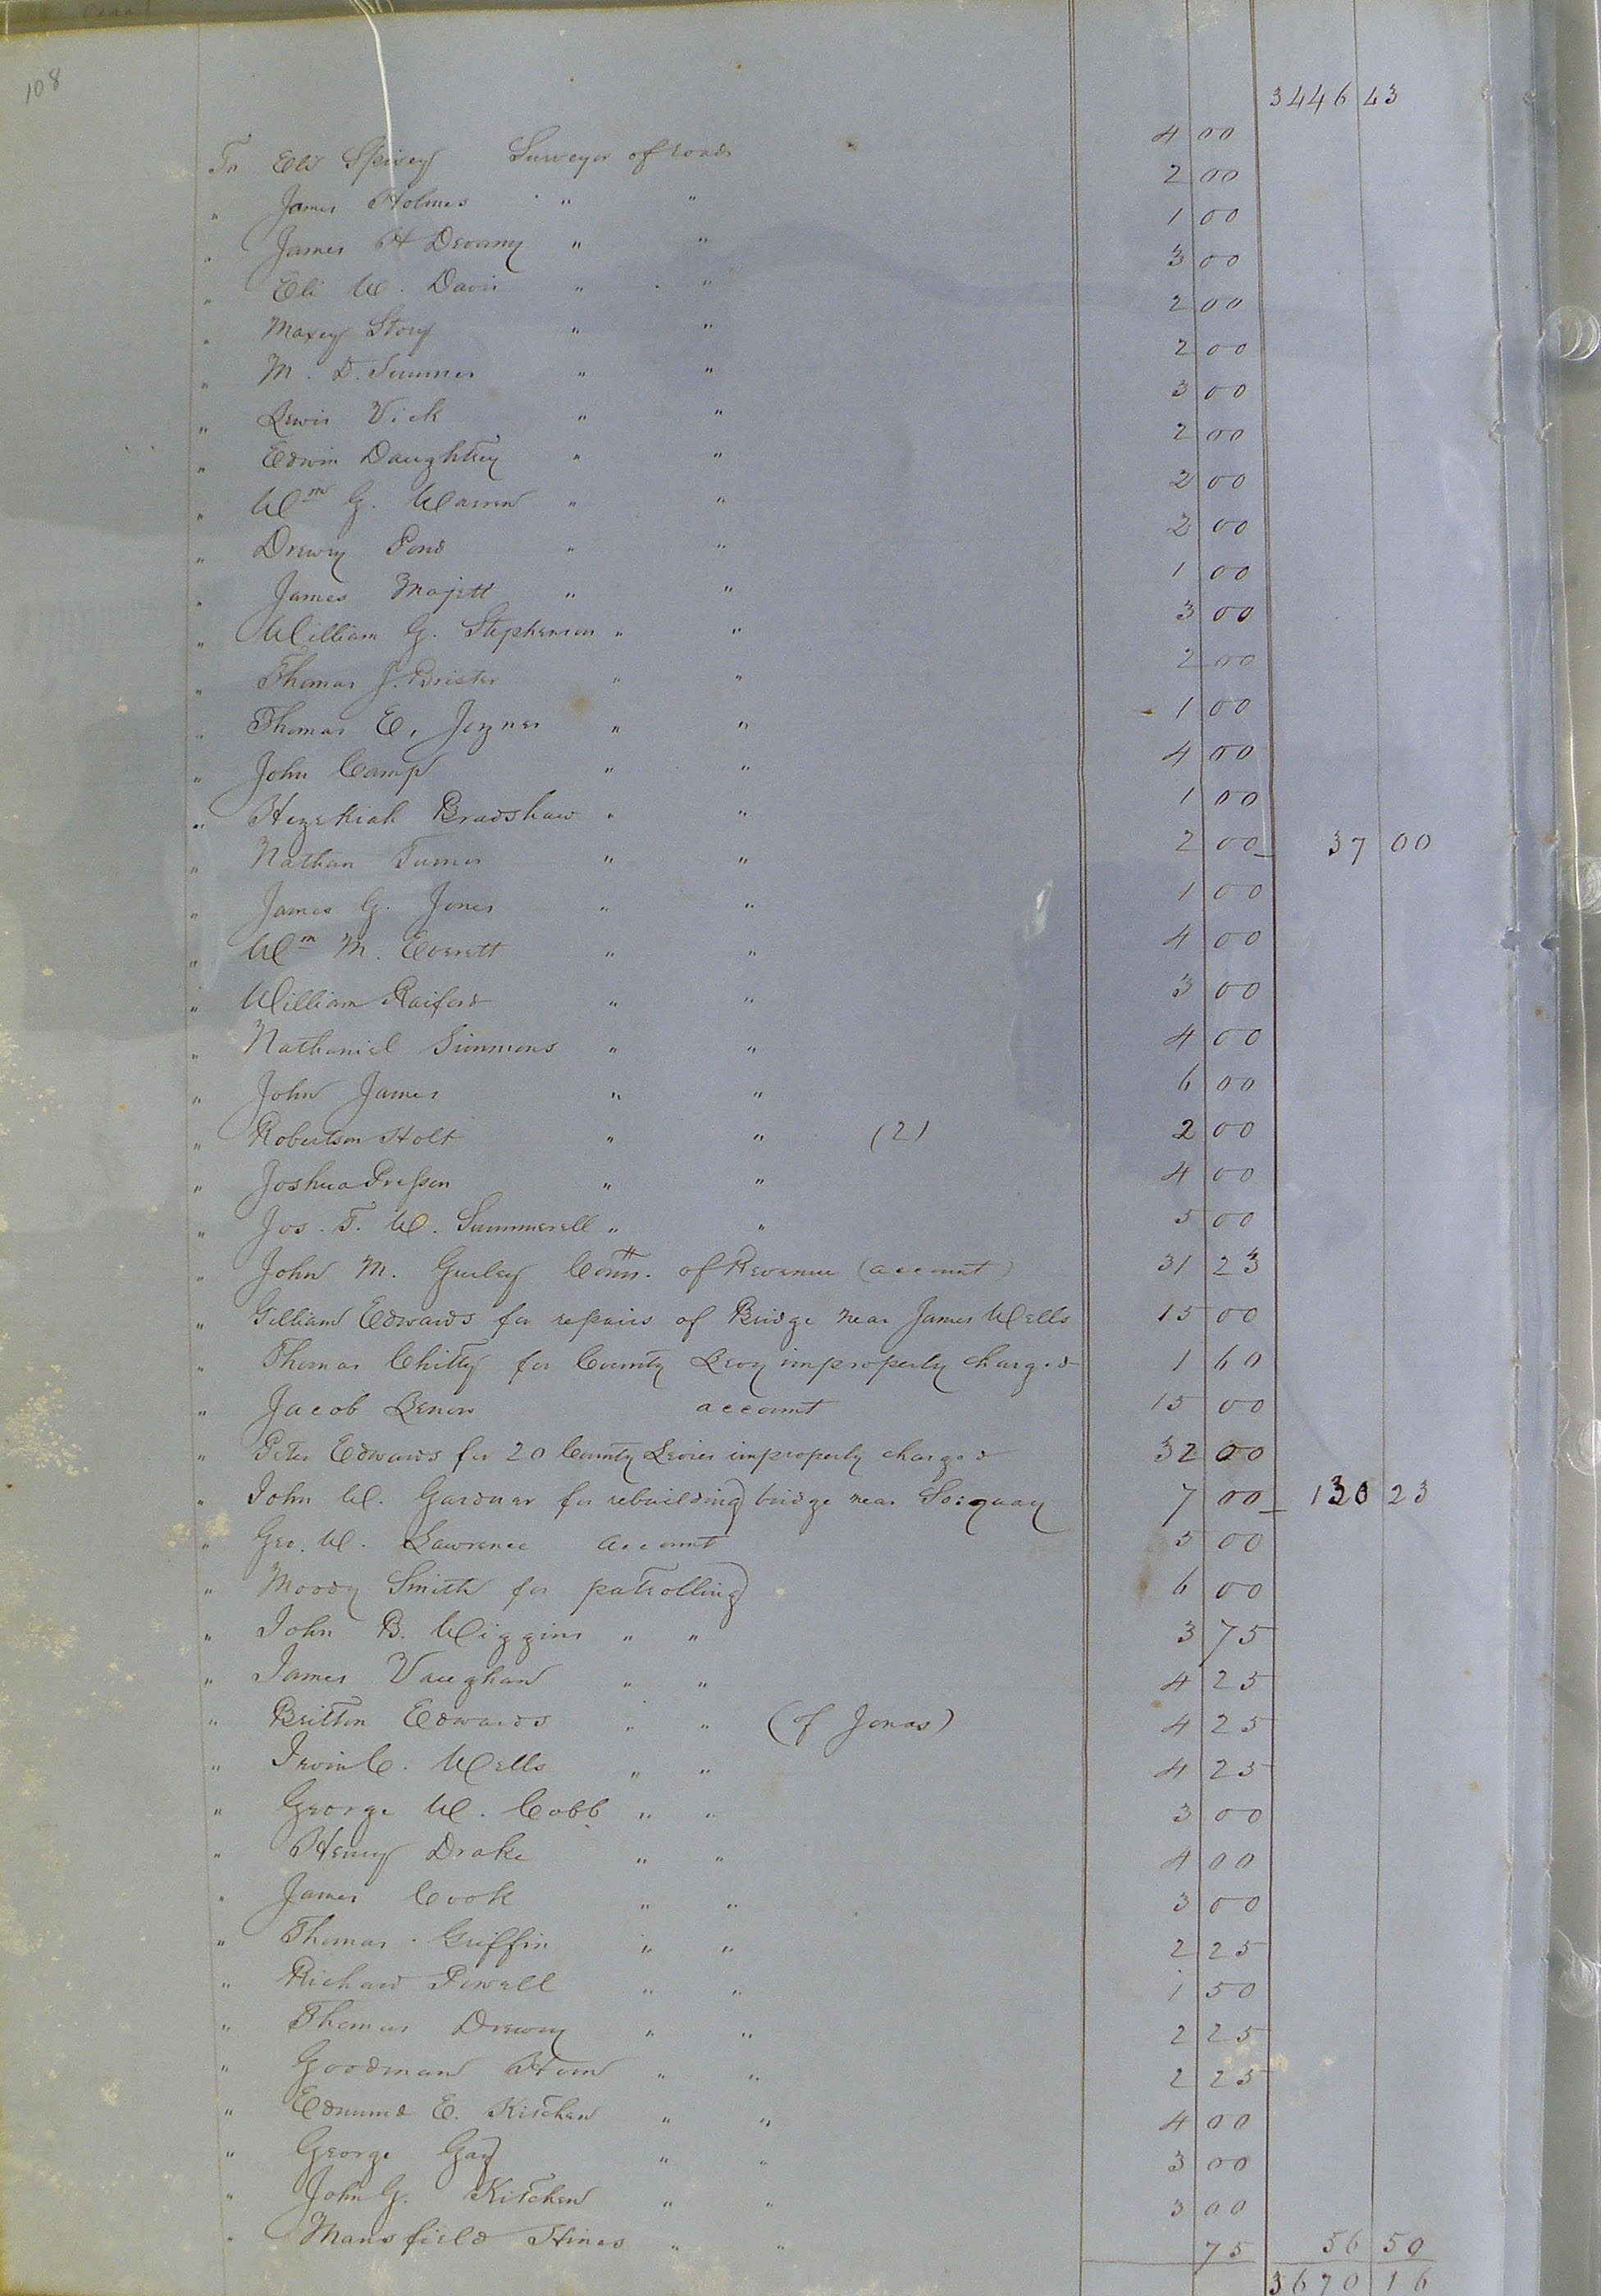 108
3446 43
To Eli Spivey Surveyor of roads 4 00
" James Holmes " " 2 00
" James H Devany " " 1 00
" Eli W. Davis " " 3 00
" Maxey Story " " 2 00
" M. D. Sumner " " 2 00
" Lewis Vick " " 3 00
" Edwin Daughtrey " " 2 00
" Wm G. Warren " " 2 00
" Drewry Pond " " 2 00
" James Majett " " 1 00
" William G. Stephenson " " 3 00
" Thomas J. Brister " " 2 00
" Thomas E. Joyner " " 1 00
" John Camp " " 4 00
" Hezekiah Bradshaw " " 1 00
" Nathan Turner " " 2 00 37 00
" James G. Jones " " 1 00
" Wm M. Everett " " 4 00
" William Raiford " " 3 00
" Nathaniel Simmons " " 4 00
" John James " " 6 00
" Robertson Holt " " (2) 2 00
" Joshua Presson " " 4 00
" Jos. T. W. Summerell " " 5 00
" John M. Gurley Comr. of Revenue (account) 31 23
" Gilliam Edwards for repairs of Bridge near James Wells 15 00
" Thomas Chitty for County Levy improperly charged 1 60
" Jacob Lenow account 15 00
" Peter Edwards for 20 County Levies improperly charged 32 00
" John W. Gardner for rebuilding bridge near So: quay 7 00 130 23
" Geo. W. Lawrence account 5 00
" Moody Smith for patrolling 6 00
" John B. Wiggins " " 3 75
" James Vaughan " " 4 25
" Britton Edwards " " (of Jonas) 4 25
" Irvin C. Wells " " 4 25
" George W. Cobb " " 3 00
" Henry Drake " " 4 00
" James Cook " " 3 00
" Thomas Griffin " " 2 25
" Richard Powell " " 1 50
" Thomas Drewry " " 2 25
" Goodman Horn " " 2 25
" Edmund E. Kitchen " " 4 00
" George Gay " " 3 00
" John G. Kitchen " " 3 00
" Mansfield Hines " " 75 56 50
3670 16